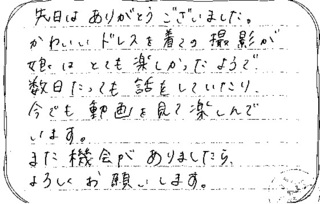 先日は ありがとう ございました。
かわいい ドレスを着ての 撮影が
娘は とても 楽しかったようで
数日たっても 話をしていたり
今でも 動画を見て楽しんで
います。
また機会が ありましたら、
よろしく お願いします。